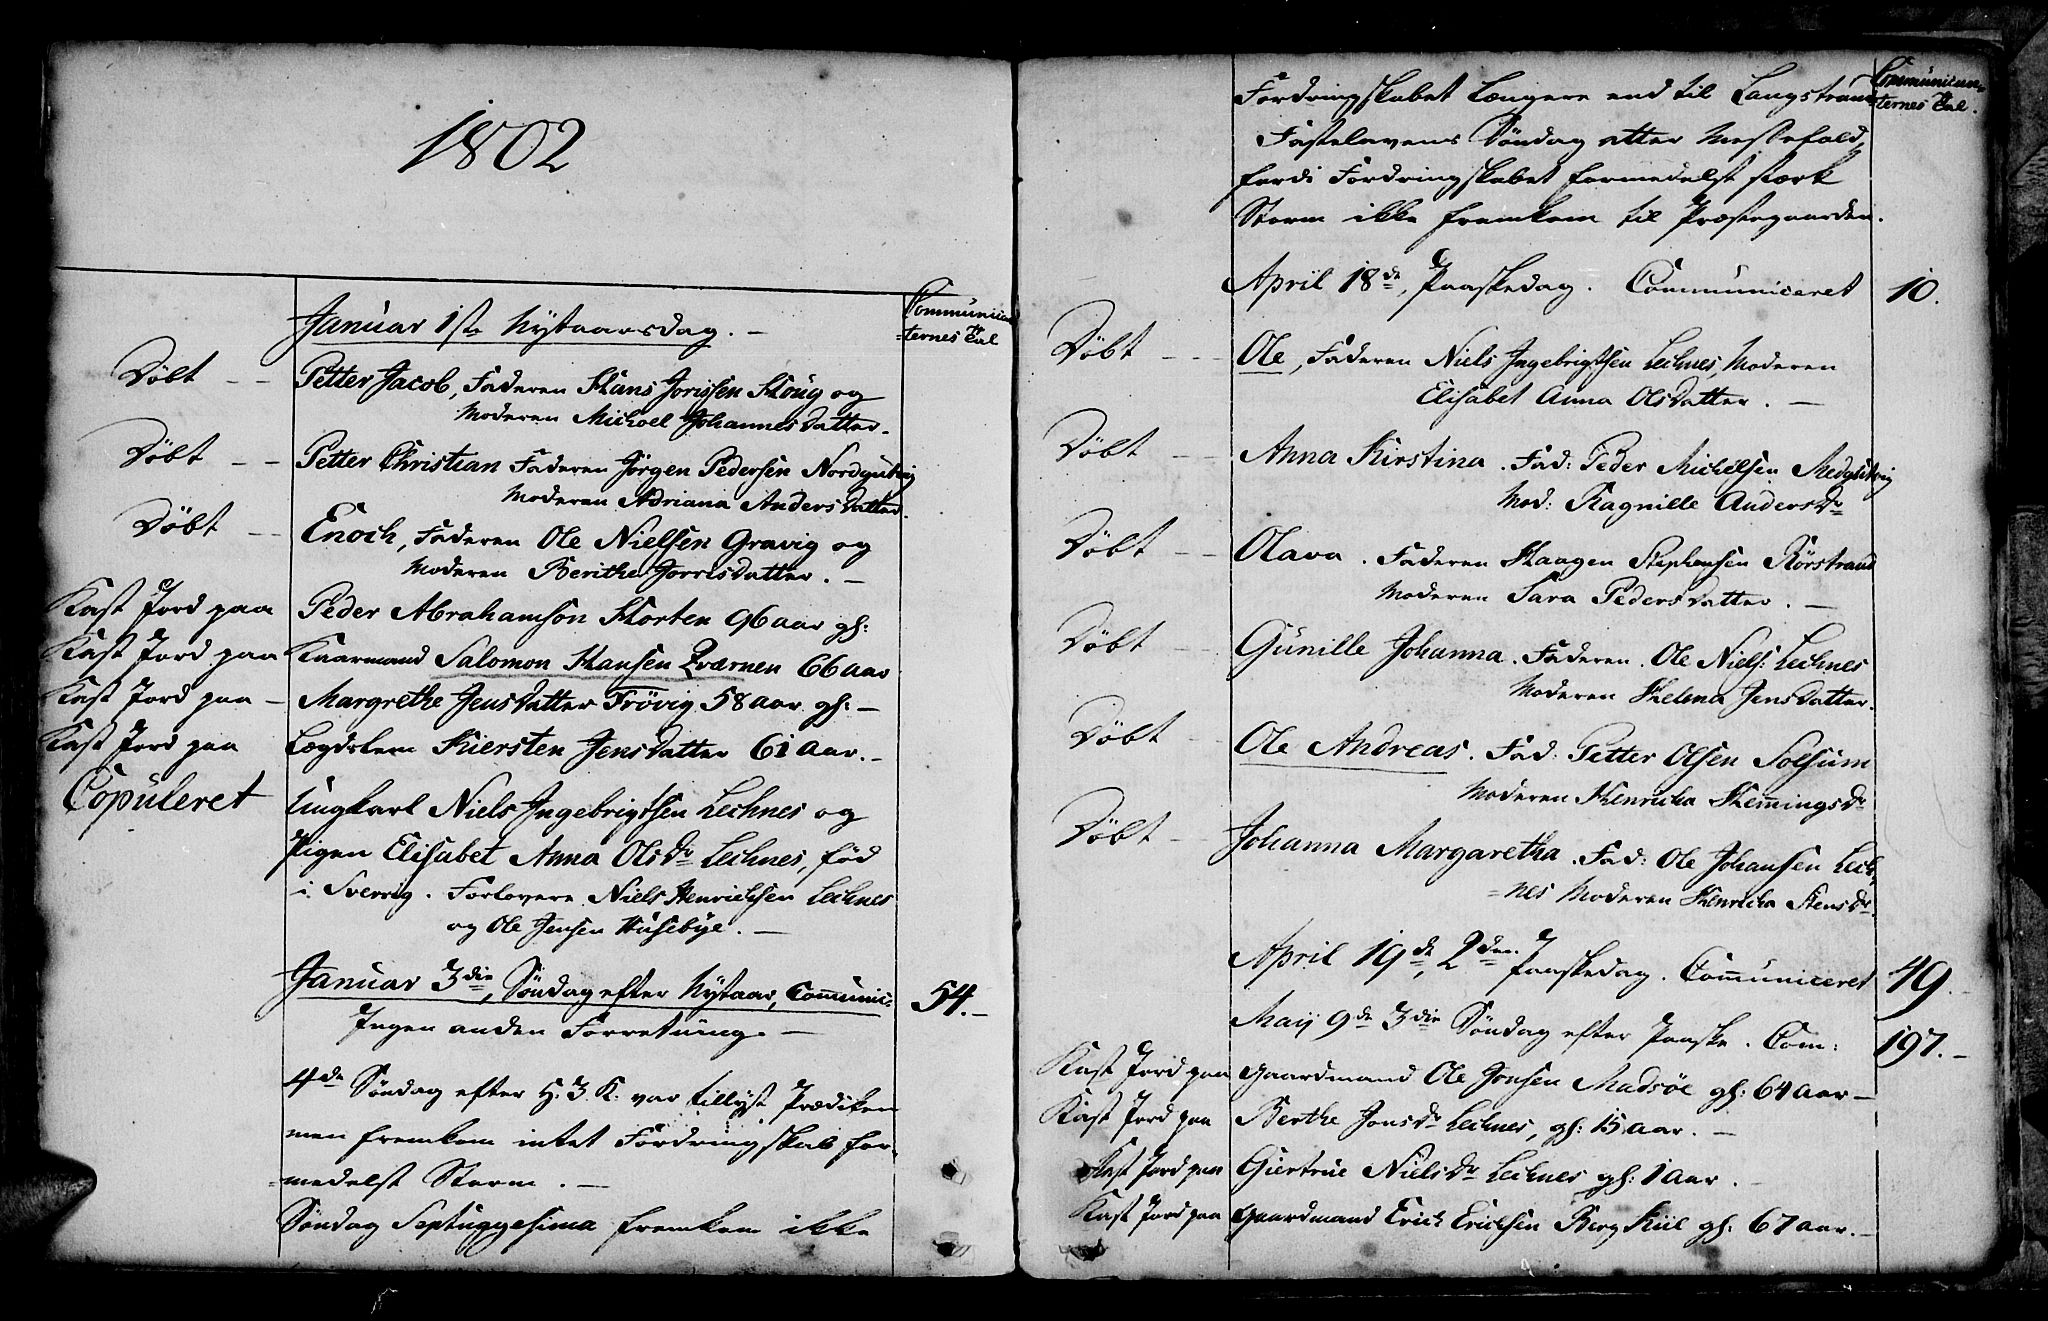 1802
Communican
-ternes Tal
Januar 1ste Nytaarsdag. -
Döbt - - Petter Jacob, Faderen Hans Jorissen Houg og
Moderen Michoel Johannesdatter.
Döbt - - Petter Christian Faderen Jörgen Pedersen Nordgutvig
Moderen Adriana Andersdatter.
Döbt - - Enoch, Faderen Ole Nielsen Gravig og
Moderen Berithe Jorrisdatter. -
Kast Jord paa Peder Abrahamson Horten 96 aar gl:
Kast Jord paa Kaarmand Salomon Hansen Qværnen 66 aar
Kast Jord paa - Margrethe Jensdatter Frövig 58 aar gl: -
Kast Jord paa Lægdslem Kiersten Jensdatter 61 aar. -
Copuleret Ungkarl Niels Ingebrigtsen Lechnes og
Pigen Elisabet Anna Olsdr Lechnes, föd
i Sverrig. Forlovere Niels Henrichsen Lechnes
og Ole Jensen Husebye. -
Januar 3die, Söndag efter Nytaar, Communic: 54. -
Ingen anden Forretning. -
4de Söndag efter H. 3 K. var tillyst Prædiken
men fremkom intet Fordringskab for-
-medelst Storm. -
Söndag Septuggesima fremkom ikke
Communican-
ternes Tal.
Fordringskabet længere end til Langstrand
Fastelavens Söndag atter Messefald,
fordi Fordringskabet formedelst stærk
Storm ikke fremkom til Præstegaarden.
April 18de, Paaskedag. Communiceret 10.
Döbt - - Ole, Faderen Niels Ingebrigtsen Lechnes, Moderen
Elisabet Anna Olsdatter. -
Döbt - - Anna Kirstina. Fad: Peder Michelsen Medgutvig
Mod: Ragnille Andersdr
Döbt - - Olava. Faderen Haagen Stephensen Rörstrand
Moderen Sara Pedersdatter. -
Döbt - Gunille Johanna. Faderen. Ole Niels: Lechnes
Moderen Helena Jensdatter.
Döbt - Ole Andreas. Fad: Petter Olsen Solsum
Moderen Henricha Hemmingsdr
Döbt - Johanna Margaretha. Fad: Ole Johansen Lech,
=nes Moderen Henricha Stensdr
April 19de, 2den Paaskedag. Communiceret 49. -
Maij 9de 3die Söndag efter Paaske. Com: 197. -
Kast Jord paa Gaardmand Ole Jonsen Madsöe gl: 64 aar -
Kast Jord paa Berthe Jonsdr Lechnes, gl: 15 aar. -
Kast Jord paa Giertrue Nielsdr Lechnes gl: 1 aar.
Kast Jord paa Gaardmand Erich Erichsen Berg Kiil gl: 67 aar. -